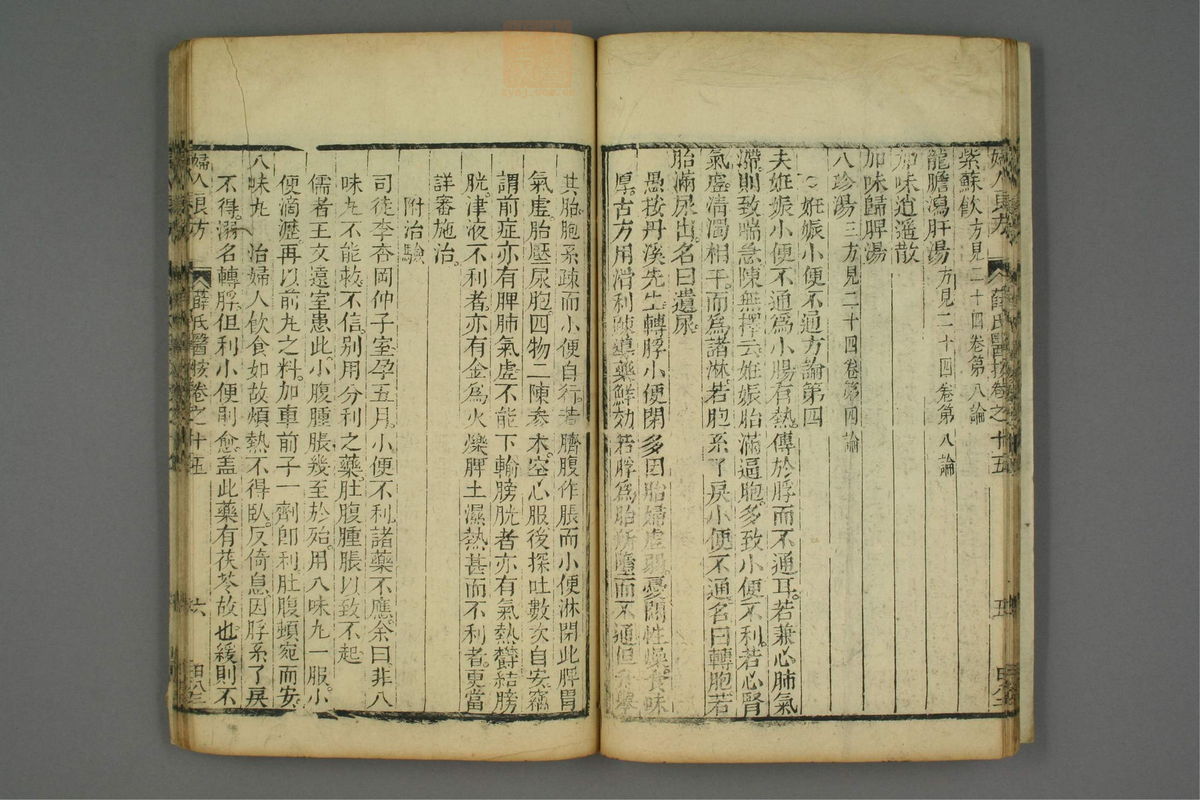 婦人良方 薛氏醫按卷之十五 五
紫蘇飲方見二十四卷第八論
龍膽瀉肝湯方見二十四卷第八論
加味逍遙散
加味歸脾湯
八珍湯三方見二十四卷第四論
○姙娠小便不通方論第四
夫姙娠小便不通爲小腸有熱傳於脬而不通耳若兼心肺氣
滯則致喘急陳無擇云姙娠胎滿逼胞多致小便不利若心腎
氣虛清濁相干而爲諸淋若胞系了戾小便不通名曰轉胞若
胎滿尿出名曰遺尿
愚按丹溪先生轉脬小便閉多因胎婦虛弱憂悶性燥食味
厚古方用滑利疎導藥鮮効若脬爲胎所墮而不通但升舉
其胎胞系疎而小便自行若臍腹作脹而小便淋閉此脬胃
氣虛胎壓尿胞四物二陳參朮空心服後探吐數次自安薛
謂前症亦有脾肺氣虛不能下輸膀胱者亦有氣熱鬱結膀
胱津液不利者亦有金爲火爍脾土濕熱甚而不利者更當
詳審施治
附治驗
司徒李杏岡仲子室孕五月小便不利諸藥不應余曰非八
味丸不能救不信別用分利之藥肚腹腫脹以致不起
儒者王文遠室患此小腹腫脹幾至於殆用八味丸一服小
便滴瀝再以前丸之料加車前子一劑卽利肚腹頓宛而安
八味丸 治婦人飲食如故煩熱不得臥反倚息因脬系了戾
不得溺名轉脬但利小便則愈蓋此藥有茯苓故也緩則不
婦人良方 薛氏醫按卷之十五 六